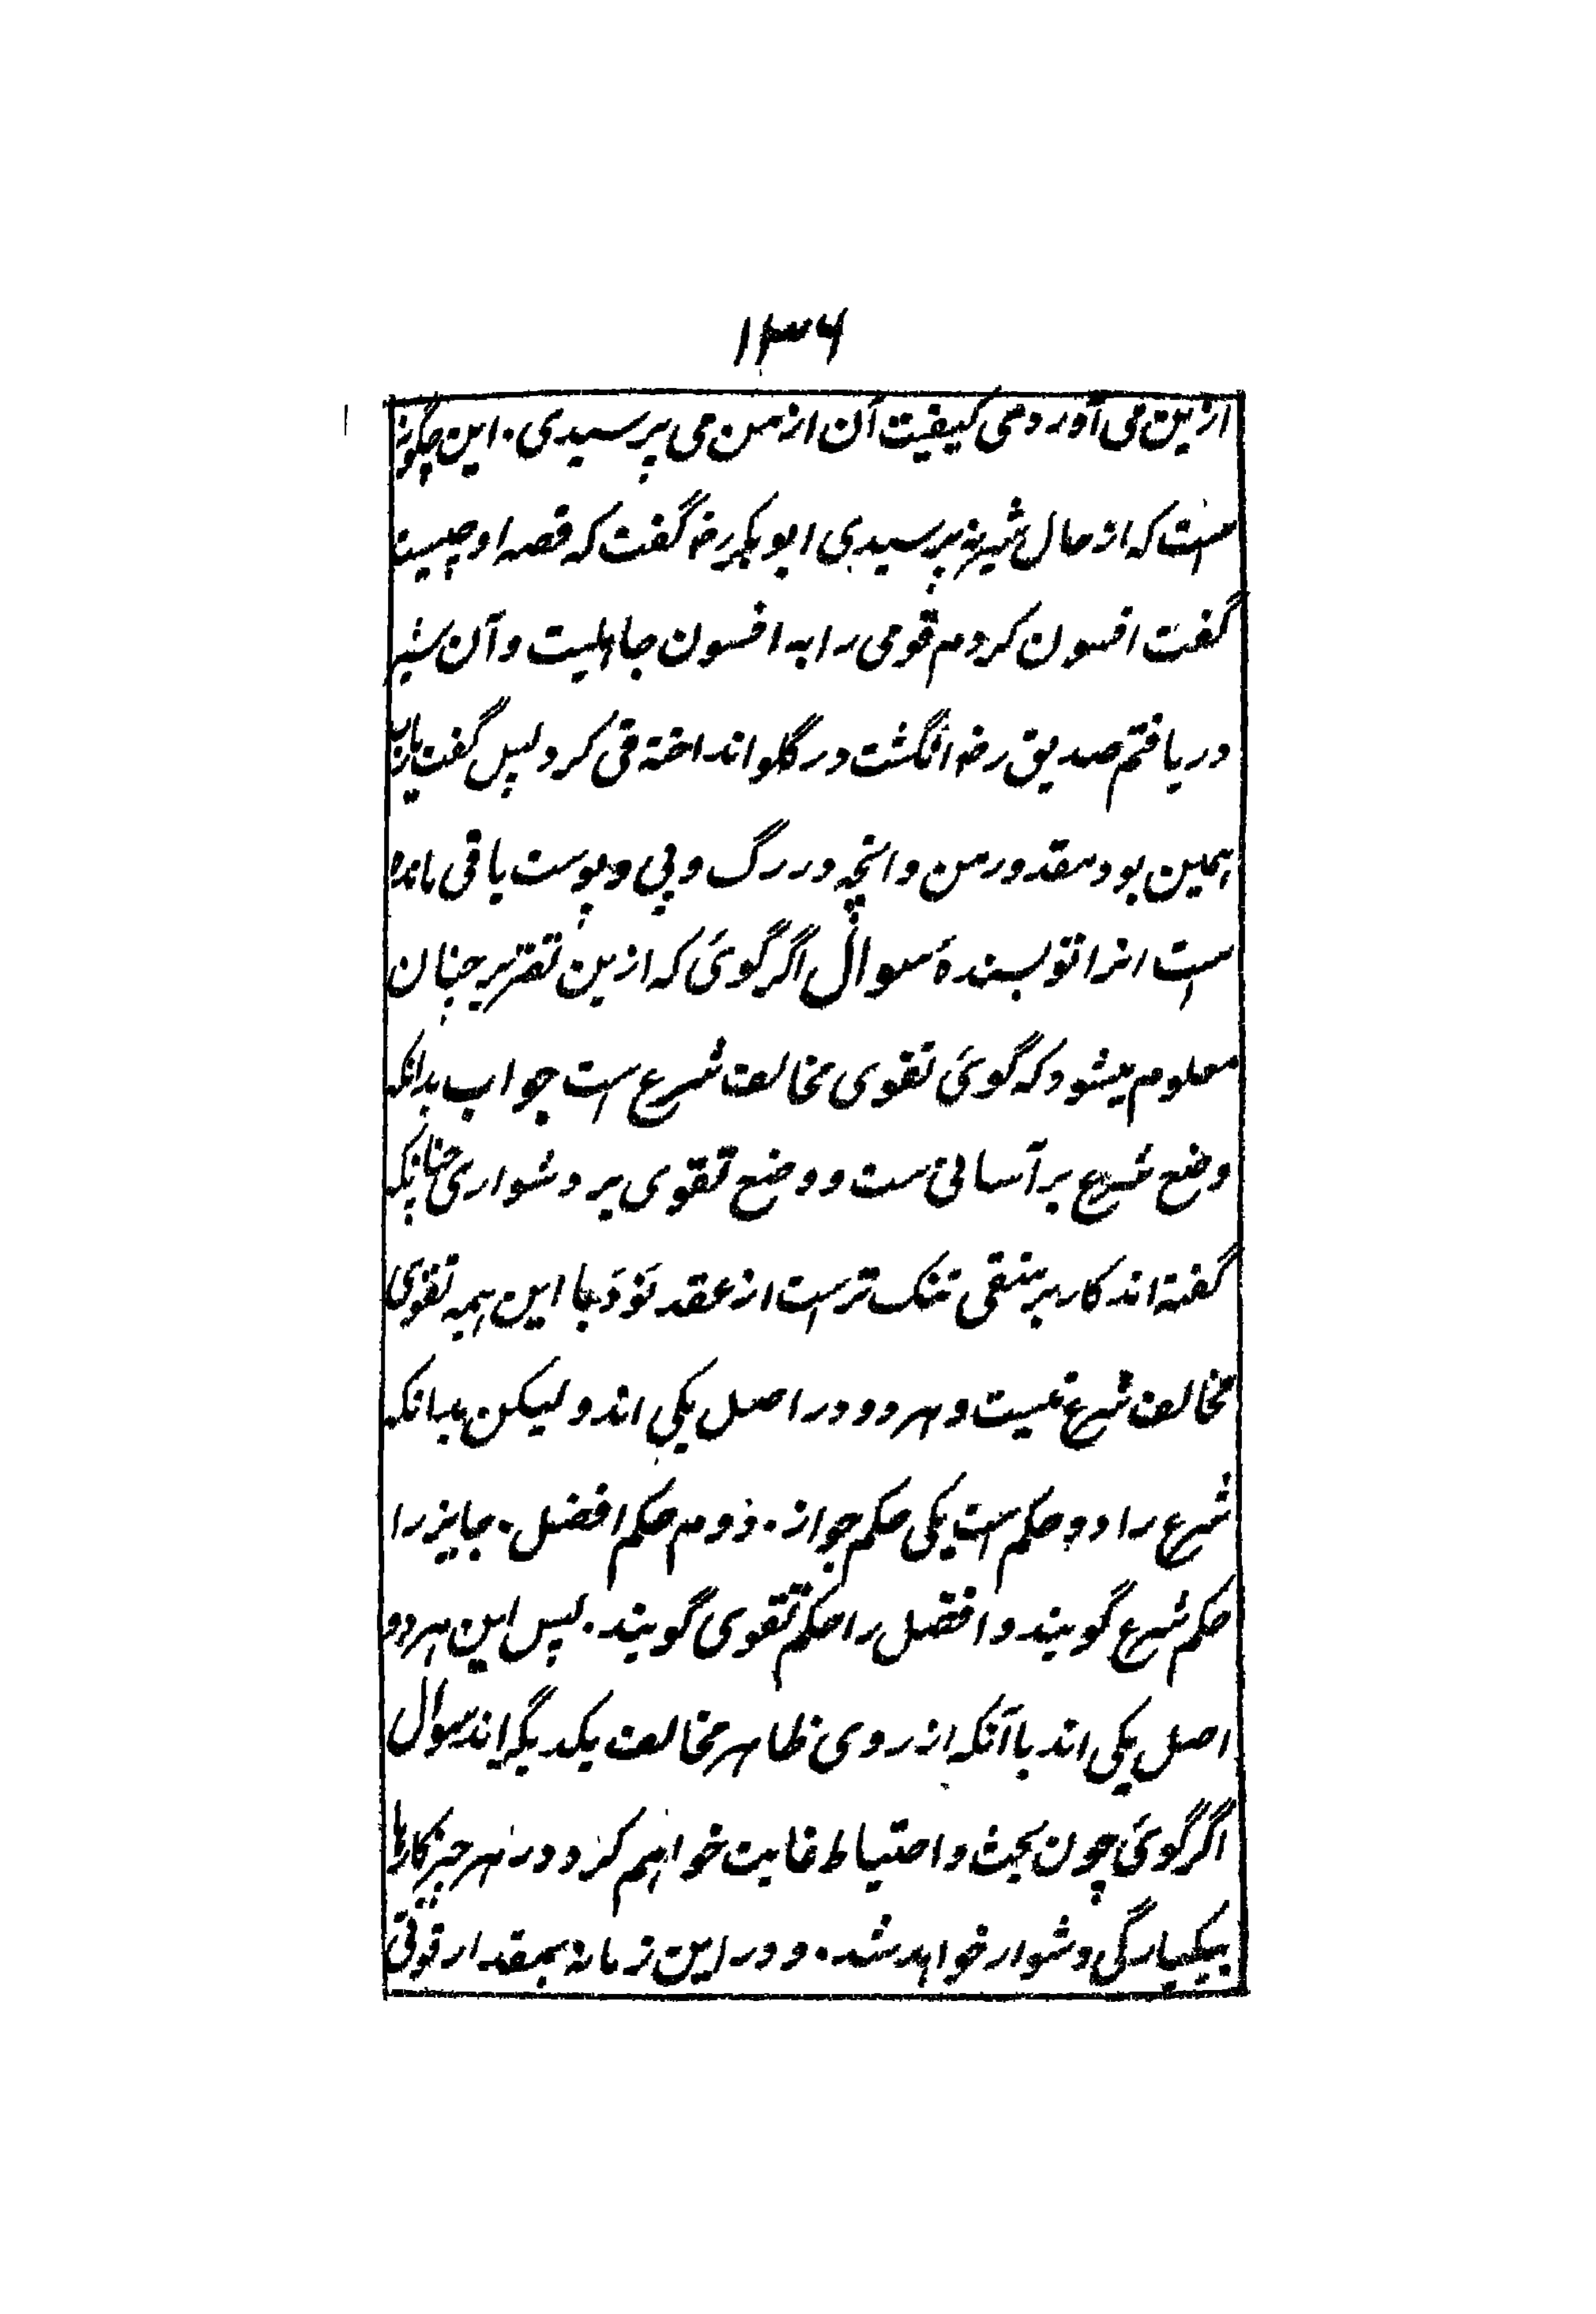 ۱۳۶
ازین می آوردمی کیفیت آن از من می پرسیدی. این چگونه
است که از حال شیر نه پرسیدی ابوبکر رضـ گفت که قصه او چیست
گفت افسون کردم قومی را به افسون جاهلیت و آن شیر
دریافتم صدیق رضـ انگشت در گلو انداخته قی کرد پس گفت یارب
همین بود مقدور من و انچه در رگ و پی و پوست باقی مانده
است انرا تو بسندهٔ سوال اگر گوئی که ازین تقریر چنان
معلوم میشود که گوئی تقوی مخالف شرع است جواب بدانکه
وضع شرع بر آسانی ست و وضع تقوی بر دشواری چنانکه
گفته اند کار بر متقی تنک ترست از عقد نَوَدْ با این همه تقوی
مخالف شرع نیست و هر دو در اصل یکی اند ولیکن بدانکه
شرع را دو حکم ست یکی حکم جواز. دوم حکم افضل. جایز را
حکم شرع گویند و افضل را حکم تقوی گویند. پس این هر دو
اصل یکی اند با آنکه از روی ظاهر مخالف یکدیگر اند سوال
اگر گوئی چون بحث و احتیاط غایت خواهم کرد و در هر چیز کارها
بیکبارگی دشوار خواهد شد. و در این زمانه بمقدار قوتی